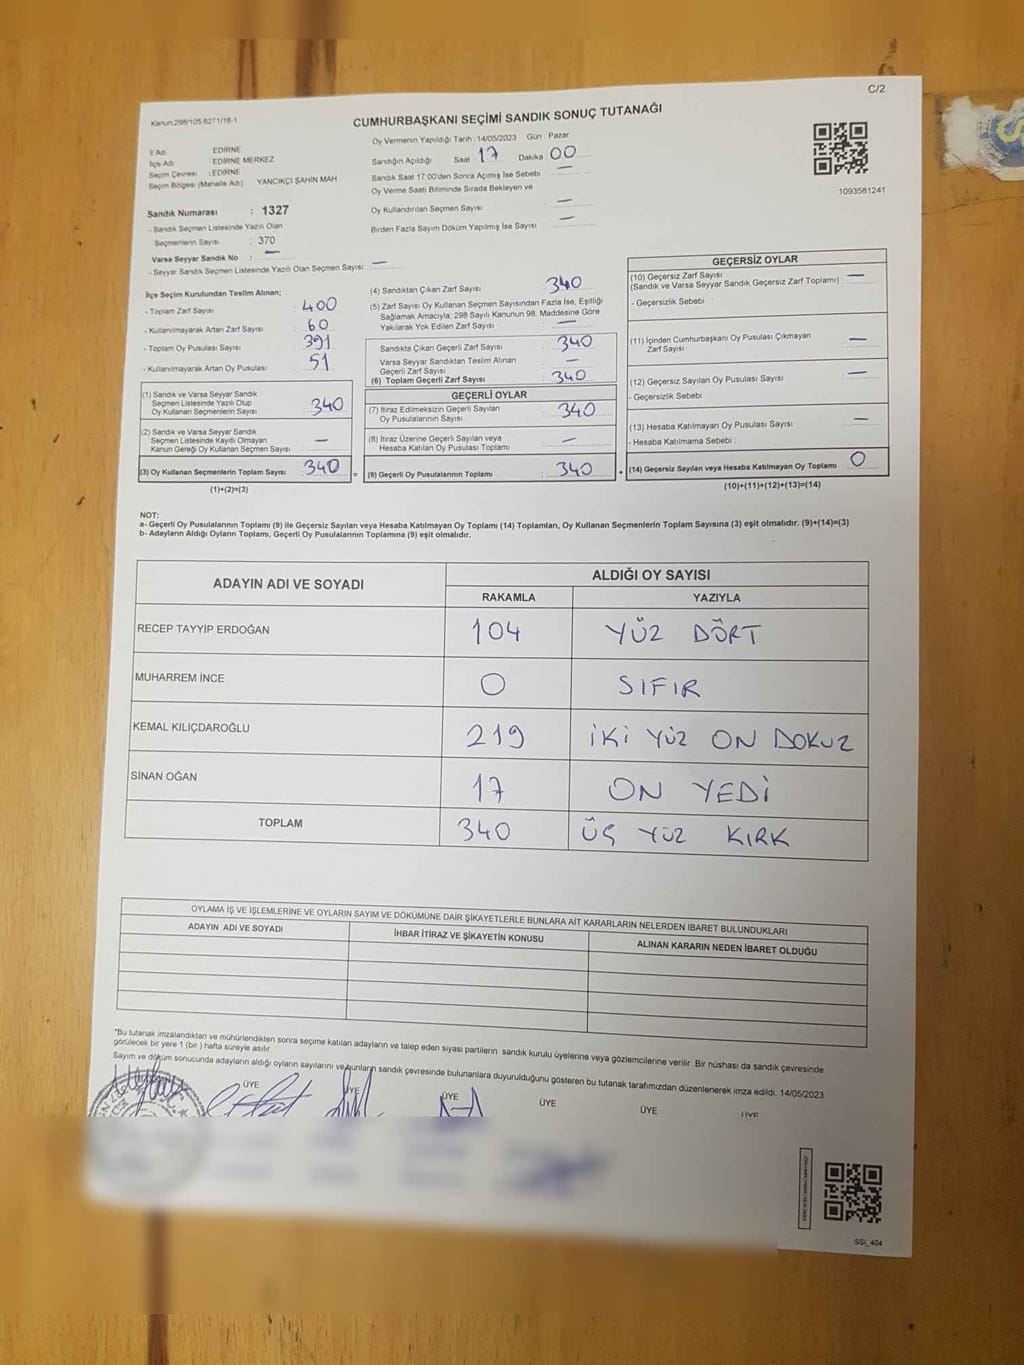 C/2
Kanun:298/105,6271/18-1
CUMHURBAŞKANI SEÇİMİ SANDIK SONUÇ TUTANAĞI
Oy Vermenin Yapıldığı Tarih :14/05/2023 Gün : Pazar
İl Adı : EDİRNE
İlçe Adı EDİRNE MERKEZ
Seçim Çevresi : EDİRNE
Seçim Bölgesi (Mahalle Adı) YANCIKÇI ŞAHİN MAH
Sandığın Açıldığı Saat 17 Dakika 00
Sandık Saat 17:00'den Sonra Açımış İse Sebebi : —
Oy Verme Saati Bitiminde Sırada Bekleyen ve
Oy Kullandırılan Seçmen Sayısı —
Birden Fazla Sayım Döküm Yapılmış İse Sayısı —
1093581241
Sandık Numarası : 1327
- Sandık Seçmen Listesinde Yazılı Olan
Seçmenlerin Sayısı : 370
Varsa Seyyar Sandık No : —
- Seyyar Sandık Seçmen Listesinde Yazılı Olan Seçmen Sayısı: —
İlçe Seçim Kurulundan Teslim Alınan;
- Toplam Zarf Sayısı : 400
- Kullanılmayarak Artan Zarf Sayısı : 60
- Toplam Oy Pusulası Sayısı : 391
- Kullanılmayarak Artan Oy Pusulası : 51
(1) Sandık ve Varsa Seyyar Sandık
Seçmen Listesinde Yazılı Olup
Oy Kullanan Seçmenlerin Sayısı : 340
(2) Sandık ve Varsa Seyyar Sandık
Seçmen Listesinde Kayıtlı Olmayan
Kanun Gereği Oy Kullanan Seçmen Sayısı —
(3) Oy Kullanan Seçmenlerin Toplam Sayısı 340
(1)+(2)=(3)
(4) Sandıktan Çıkan Zarf Sayısı : 340
(5) Zarf Sayısı Oy Kullanan Seçmen Sayısından Fazla İse, Eşitliği
Sağlamak Amacıyla; 298 Sayılı Kanunun 98. Maddesine Göre
Yakılarak Yok Edilen Zarf Sayısı : —
Sandıkta Çıkan Geçerli Zarf Sayısı : 340
Varsa Seyyar Sandıktan Teslim Alınan
Geçerli Zarf Sayısı —
(6) Toplam Geçerli Zarf Sayısı : 340
GEÇERLİ OYLAR
(7) İtiraz Edilmeksizin Geçerli Sayılan
Oy Pusulalarının Sayısı : 340
(8) İtiraz Üzerine Geçerli Sayılan veya
Hesaba Katılan Oy Pusulası Toplamı : —
= (9) Geçerli Oy Pusulalarının Toplamı : 340
GEÇERSİZ OYLAR
(10) Geçersiz Zarf Sayısı —
(Sandık ve Varsa Seyyar Sandık Geçersiz Zarf Toplamı)
- Geçersizlik Sebebi :
(11) İçinden Cumhurbaşkanı Oy Pusulası Çıkmayan
Zarf Sayısı —
(12) Geçersiz Sayılan Oy Pusulası Sayısı —
- Geçersizlik Sebebi :
(13) Hesaba Katılmayan Oy Pusulası Sayısı —
- Hesaba Katılmama Sebebi :
+ (14) Geçersiz Sayılan veya Hesaba Katılmayan Oy Toplamı 0
(10)+(11)+(12)+(13)=(14)
NOT:
a- Geçerli Oy Pusulalarının Toplamı (9) ile Geçersiz Sayılan veya Hesaba Katılmayan Oy Toplamı (14) Toplamları, Oy Kullanan Seçmenlerin Toplam Sayısına (3) eşit olmalıdır. (9)+(14)=(3)
b- Adayların Aldığı Oyların Toplamı, Geçerli Oy Pusulalarının Toplamına (9) eşit olmalıdır.
ADAYIN ADI VE SOYADI ALDIĞI OY SAYISI
RAKAMLA YAZIYLA
RECEP TAYYİP ERDOĞAN 104 YÜZ DÖRT
MUHARREM İNCE 0 SIFIR
KEMAL KILIÇDAROĞLU 219 İKİ YÜZ ON DOKUZ
SİNAN OĞAN 17 ON YEDİ
TOPLAM 340 ÜÇ YÜZ KIRK
OYLAMA İŞ VE İŞLEMLERİNE VE OYLARIN SAYIM VE DÖKÜMÜNE DAİR ŞİKAYETLERLE BUNLARA AİT KARARLARIN NELERDEN İBARET BULUNDUKLARI
ADAYIN ADI VE SOYADI İHBAR İTİRAZ VE ŞİKAYETİN KONUSU ALINAN KARARIN NEDEN İBARET OLDUĞU
"Bu tutanak imzalandıktan ve mühürlendikten sonra seçime katılan adayların ve talep eden siyasi partilerin sandık kurulu üyelerine veya gözlemcilerine verilir. Bir nüshası da sandık çevresinde
görülecek bir yere 1 (bir) hafta süreyle asılır.
Sayım ve döküm sonucunda adayların aldığı oyların sayılarını ve bunların sandık çevresinde bulunanlara duyurulduğunu gösteren bu tutanak tarafımızdan düzenlenerek imza edildi. 14/05/2023
ÜYE ÜYE ÜYE ÜYE ÜYE ÜYE
SSI_404